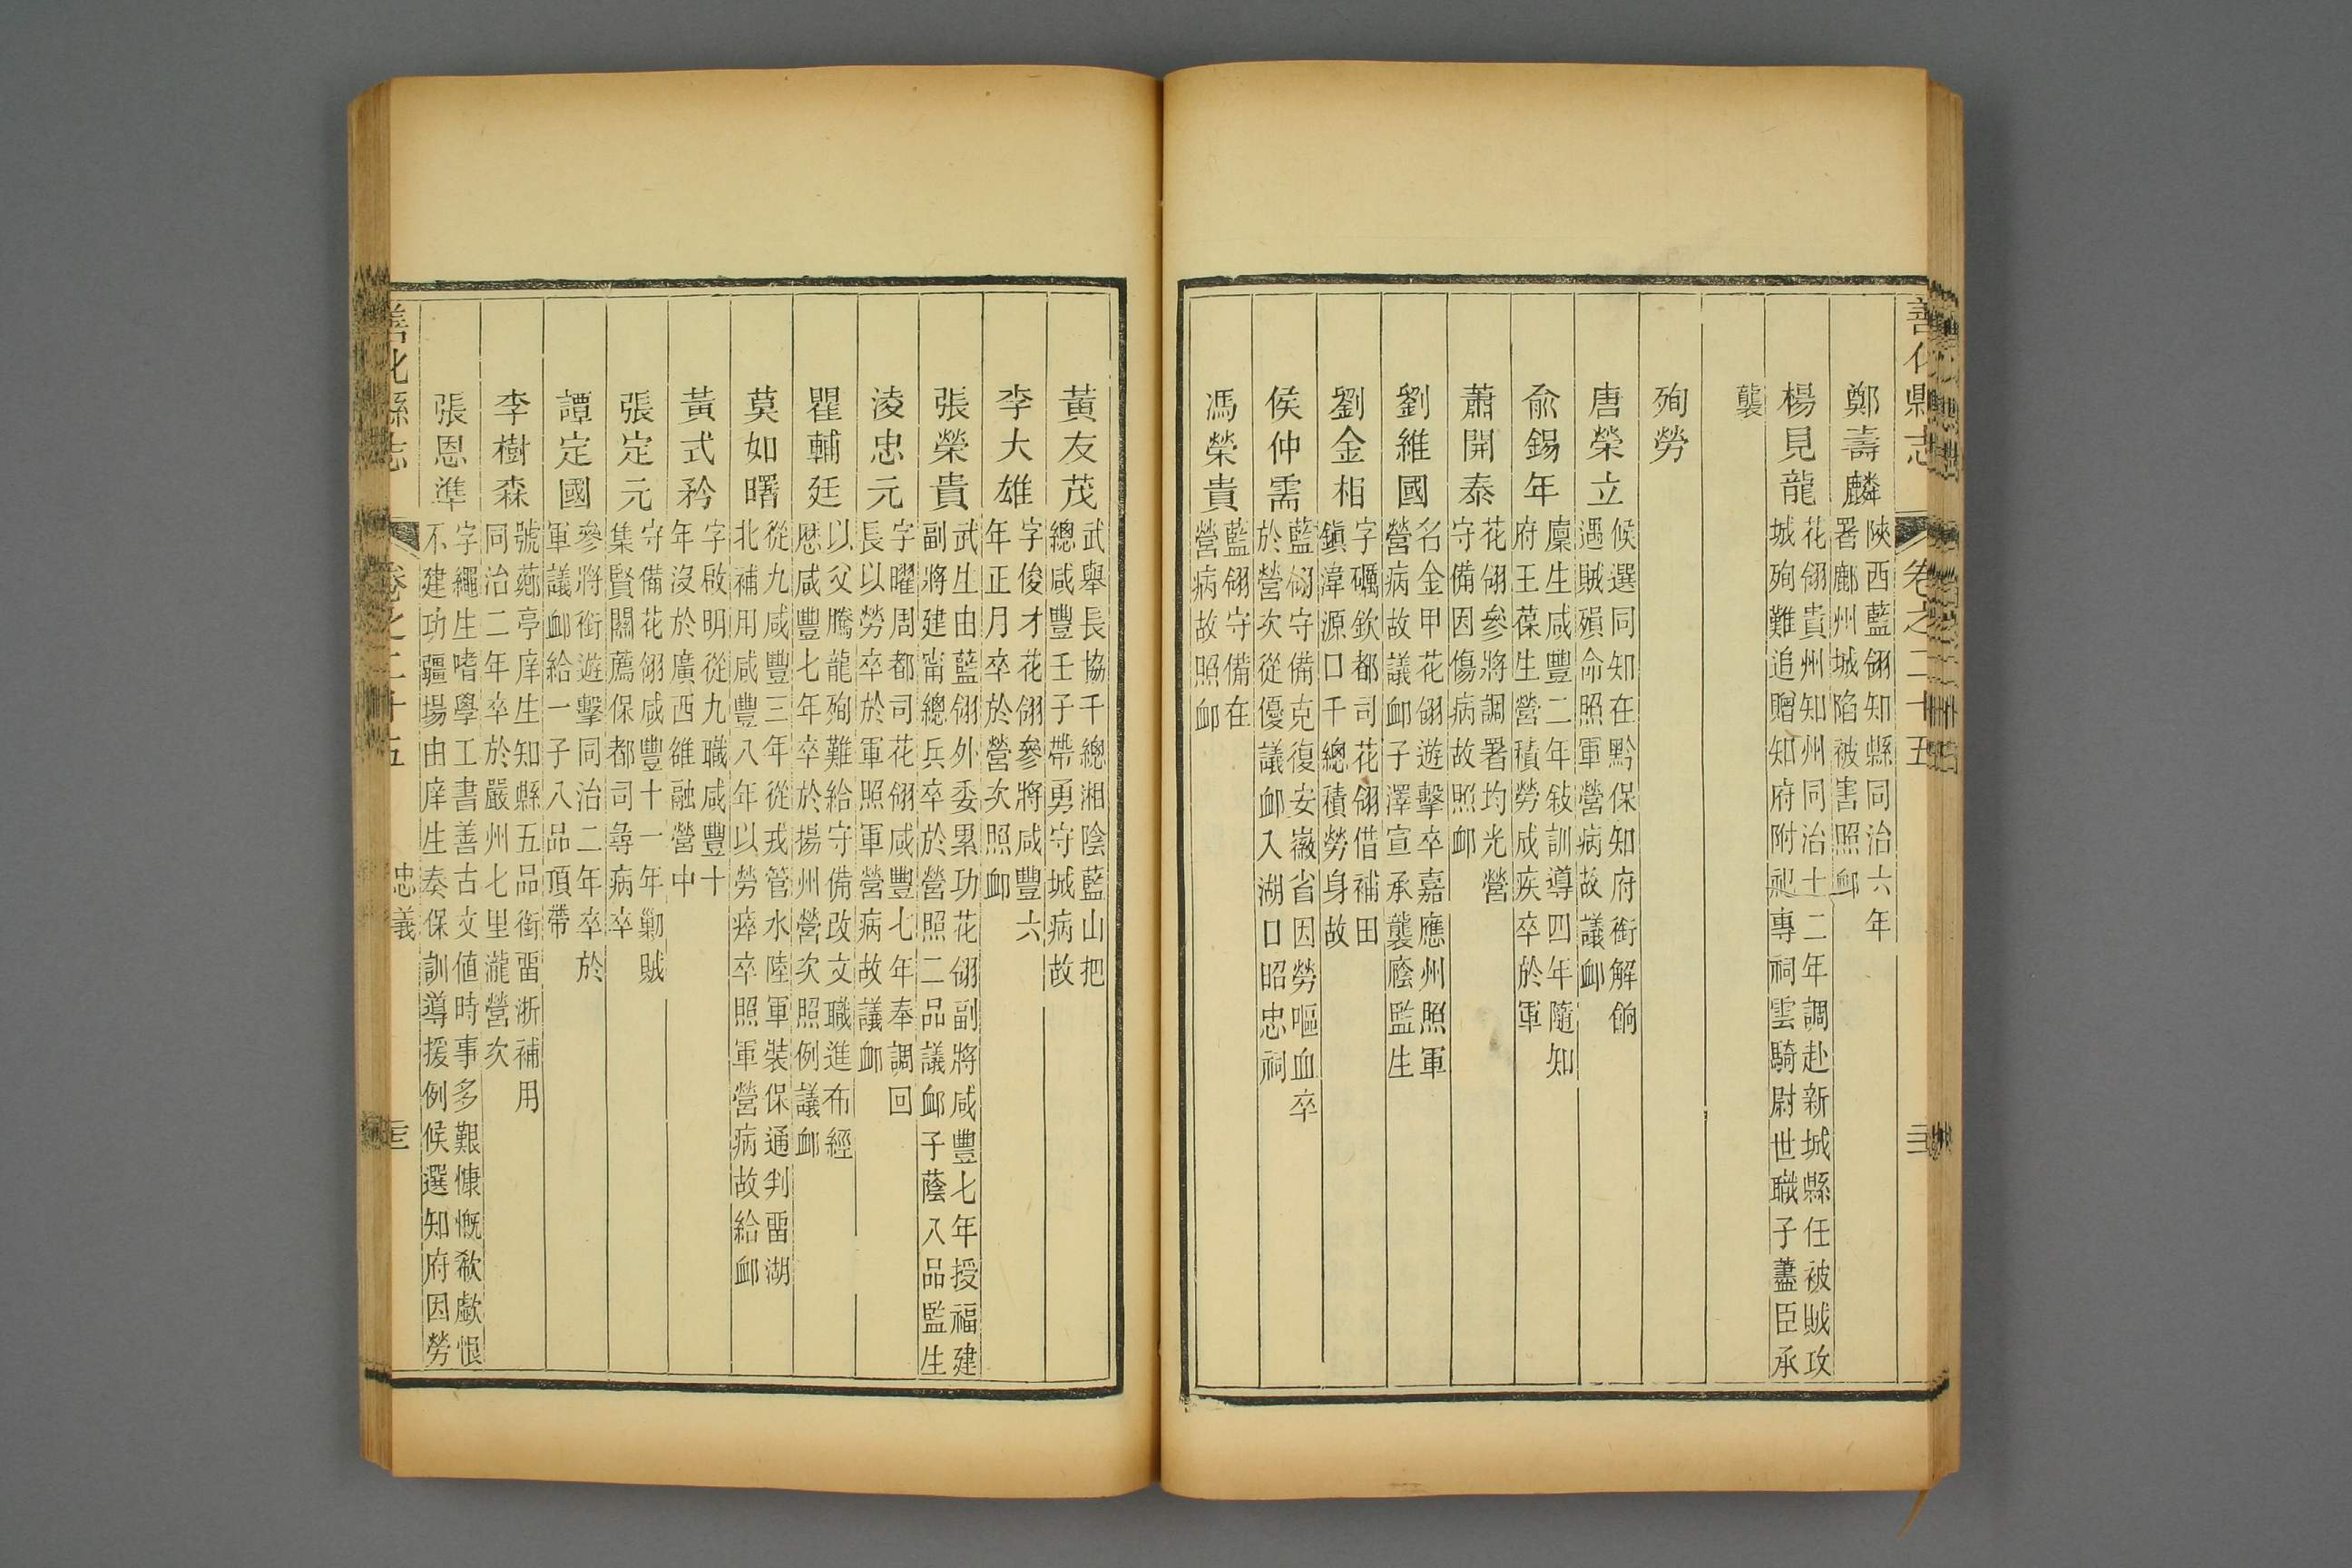 善化縣志
卷之二十五
鄭壽麟
陝西藍翎知縣同治六年
署鄜州城陷被害照卹
楊見龍
花翎貴州知州同治十二年調赴新城縣任被賊攻
城殉難追贈知府附祀專祠雲騎尉世職子藎臣承
襲
殉勞
唐榮立
候選同知在黔保知府銜解餉
遇賊殞命照軍營病故議卹
俞錫年
廩生咸豐二年敍訓導四年隨知
府王葆生營積勞成疾卒於軍
蕭開泰
花翎參將調署均光營
守備因傷病故照卹
劉維國
名金甲花翎遊擊卒嘉應州照軍
營病故議卹子澤宣承襲廕監生
劉金相
字礪欽都司花翎借補田
鎮湋源口千總積勞身故
侯仲需
藍翎守備克復安徽省因勞嘔血卒
於營次從優議卹入湖口昭忠祠
馮榮貴
藍翎守備在
營病故照卹
黃友茂
武舉長協千總湘陰藍山把
總咸豐壬子帶勇守城病故
李大雄
字俊才花翎參將咸豐六
年正月卒於營次照卹
張榮貴
武生由藍翎外委累功花翎副將咸豐七年授福建
副將建甯總兵卒於營照二品議卹子蔭入品監生
淩忠元
字曜周都司花翎咸豐七年奉調回
長以勞卒於軍照軍營病故議卹
瞿輔廷
以父騰龍殉難給守備改文職進布經
歷咸豐七年卒於揚州營次照例議卹
莫如曙
從九咸豐三年從戎管水陸軍裝保通判畱湖
北補用咸豐八年以勞瘁卒照軍營病故給卹
黃式矜
字啟明從九職咸豐十
年沒於廣西維融營中
張定元
守備花翎咸豐十一年勦賊
集賢關薦保都司尋病卒
譚定國
參將銜遊擊同治二年卒於
軍議卹給一子八品頂帶
李樹森
號薌亭庠生知縣五品銜畱浙補用
同治二年卒於嚴州七里瀧營次
張恩準
字繩生嗜學工書善古文值時事多艱慷慨欷歔恨
不建功疆場由庠生奏保訓導援例候選知府因勞
善化縣志
卷之二十五
忠義